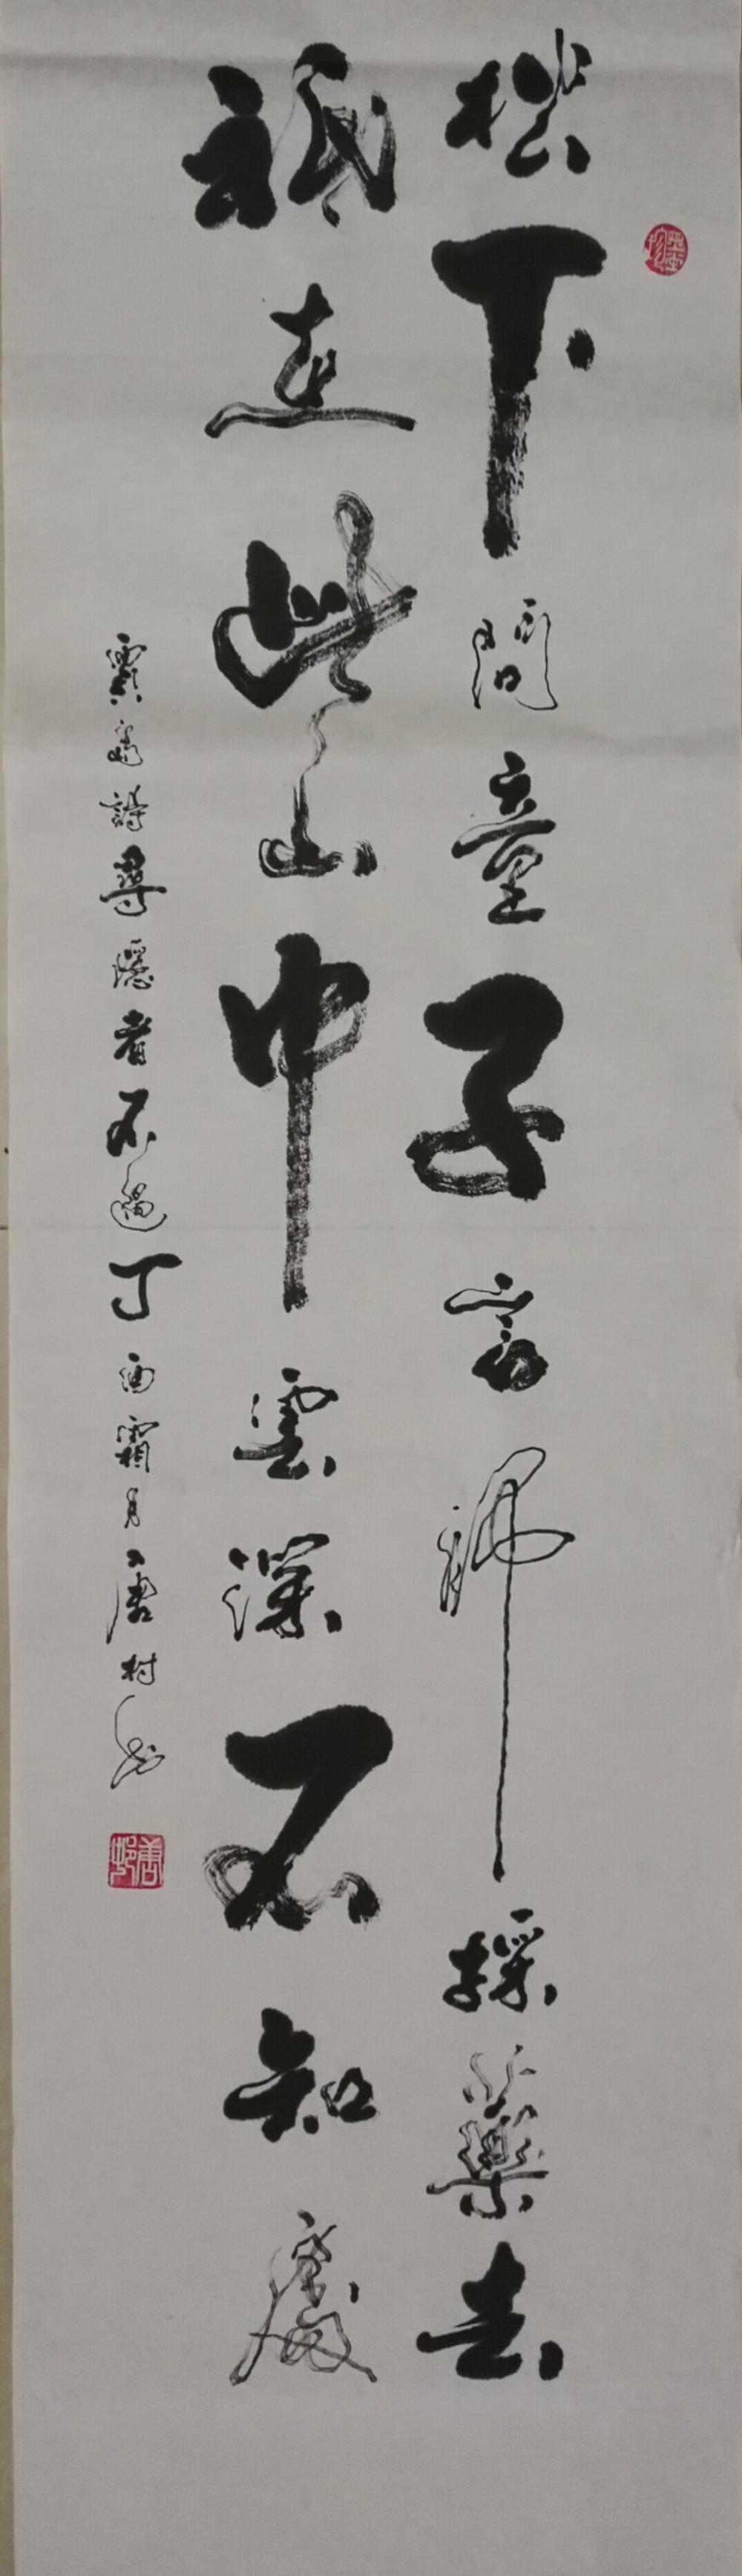 松下問童子言師採藥去
祇在此山中雲深不知處
賈島詩尋隱者不遇丁酉霜月唐村書
唐邨